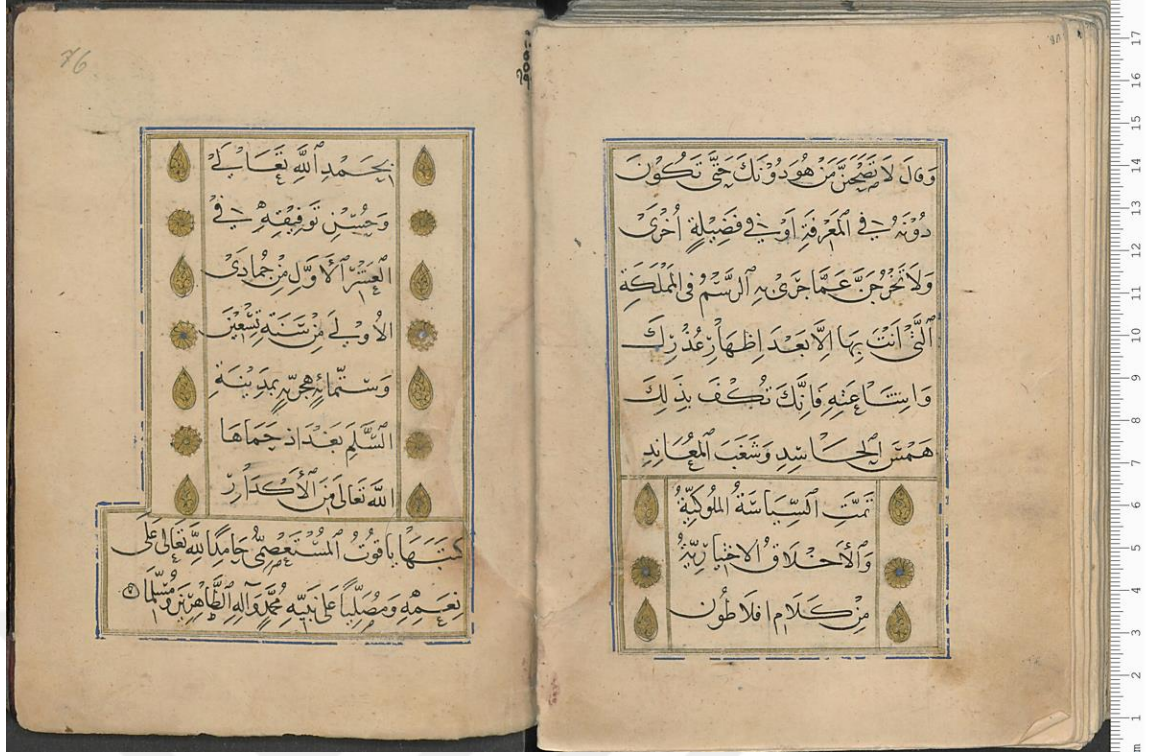 وَقَالَ لَا تَصْحَبَنَّ مَنْ هُوَ دُونَكَ حَتَّى تَكُونَ
دُونَهُ فِي الْمَعْرِفَةِ أَوْ فِي فَضِيلَةٍ أُخْرَى
وَلَا تَخْرُجَنَّ عَمَّا جَرَى بِهِ الرَّسْمُ فِي الْمَمْلَكَةِ
الَّتِي أَنْتَ بِهَا إِلَّا بَعْدَ إِظْهَارِ عُذْرِكَ
فَإِنَّكَ تَكُفُّ بِذَلِكَ
هَمْسَ الْحَاسِدِ وَشَغَبَ الْمُعَانِدِ
تَمَّتِ السِّيَاسَةُ الْمُلُوكِيَّةُ
وَالْأَخْلَاقُ الِاخْتِيَارِيَّةُ
مِنْ كَلَامِ افْلَاطُون
بِحَمْدِ اللَّهِ تَعَالَى
وَحُسْنِ تَوْفِيقِهِ فِي
الْعَشْرِ الْأَوَّلِ مِنْ جُمَادَى
الْأُولَى مِنْ سَنَةِ تِسْعِينَ
وَسِتّمِائَةٍ هِجْرِيَّةٍ بِمَدِينَةِ
السَّلَمِ بَغْدَاذ حَمَاهَا
اللَّهُ تَعَالَى مِنَ الْأَكْدَارِ
كَتَبَهَا يَاقُوتُ الْمُسْتَعْصِمِيُّ حَامِدًا لِلَّهِ تَعَالَى عَلَى
نِعَمِهِ وَمُصَلِّيًا عَلَى نَبِيِّهِ مُحَمَّدٍ وَآلِهِ الطَّاهِرِينَ وَمُسَلِّمًا
76
17
16
15
14
13
12
11
10
9
8
7
6
5
4
3
2
1